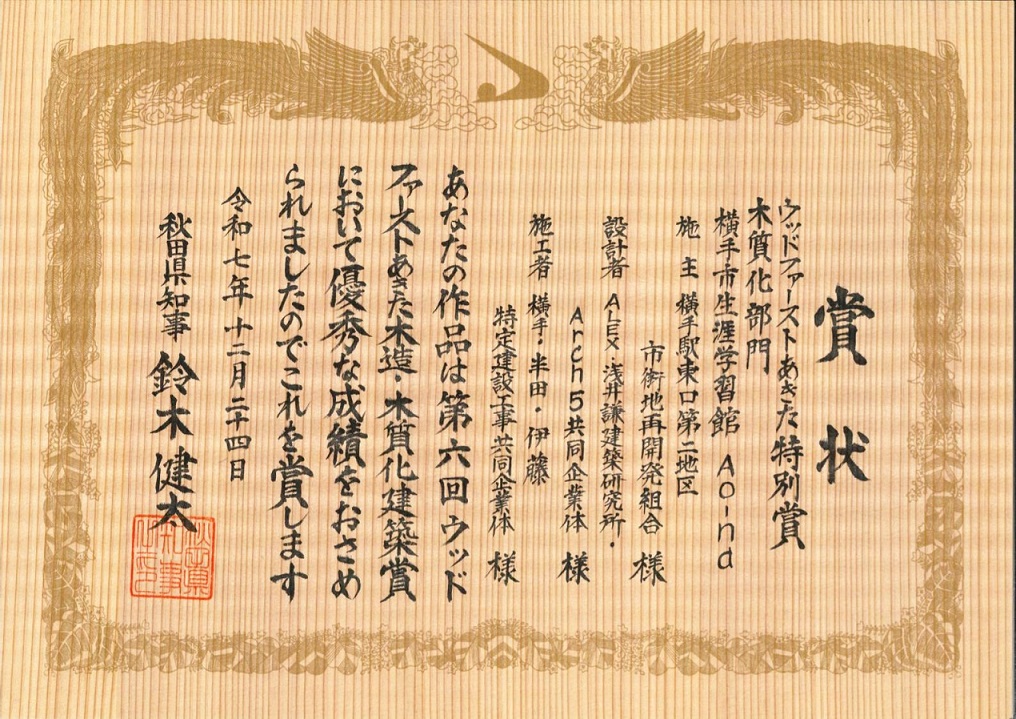 賞状
ウッドファーストあきた特別賞
木質化部門
横手市生涯学習館 Ao-na
施主 横手駅東口第二地区
市街地再開発組合 様
設計者 ALEX・浅井謙建築研究所・
Arch5共同企業体 様
施工者 横手・半田・伊藤
特定建設工事共同企業体 様
あなたの作品は第六回ウッド
ファーストあきた木造・木質化建築賞
において優秀な成績をおさめ
られましたのでこれを賞します
令和七年十二月二十四日
秋田県知事 鈴木健太